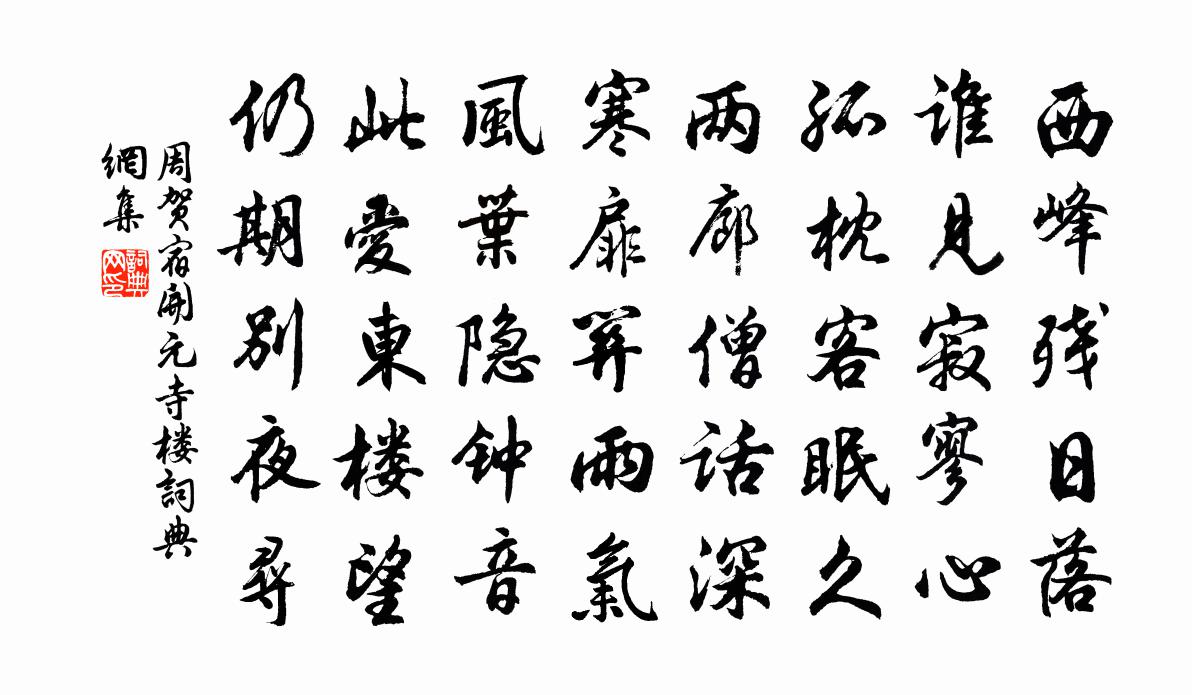 西峰残日落
谁見寂寥心
孤枕客眠久
两廊僧话深
寒扉關雨氣
風葉隐钟音
此愛東楼望
仍期别夜尋
周贺宿開元寺楼詞典
網集
詞典网印